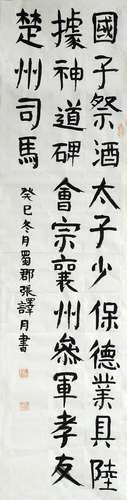 國子祭酒太子少保德業具陸
據神道碑會宗襄州參軍孝友
楚州司馬
癸巳冬月蜀郡張譯月書